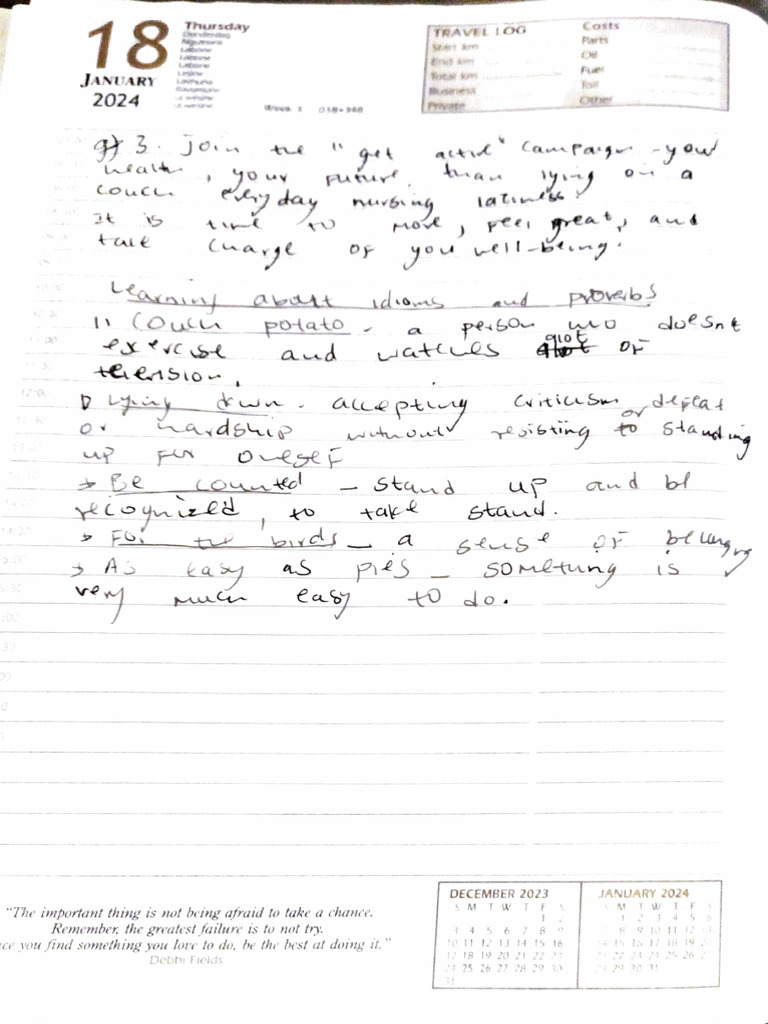 18
JANUARY
2024
Thursday
Donderdag
Week 3 018-348
TRAVEL LOG
Start km
End km
Total km
Business
Private
Costs
Parts
Oil
Fuel
Toll
Other
3. Join the "get active" campaign - your
health, your future, than lying on a
couch everyday nursing laziness.
It is time to move, feel great, and
take charge of you well-being.
Learning about idioms and proverbs
Couch potato - a person who doesnt
exercise and watches alot of
television.
Lying down - accepting criticism or defeat
or hardship without resisting to standing
up for oneself
→ Be counted - stand up and be
recognized, to take stand.
→ For the birds - a sense of belonging
→ As easy as pies - something is
very much easy to do.
"The important thing is not being afraid to take a chance.
Remember, the greatest failure is to not try.
ce you find something you love to do, be the best at doing it."
Debbi Fields
DECEMBER 2023
S M T W T F S
1 2
3 4 5 6 7 8 9
10 11 12 13 14 15 16
17 18 19 20 21 22 23
24 25 26 27 28 29 30
31
JANUARY 2024
S M T W T F S
1 2 3 4 5 6
7 8 9 10 11 12 13
14 15 16 17 18 19 20
21 22 23 24 25 26 27
28 29 30 31